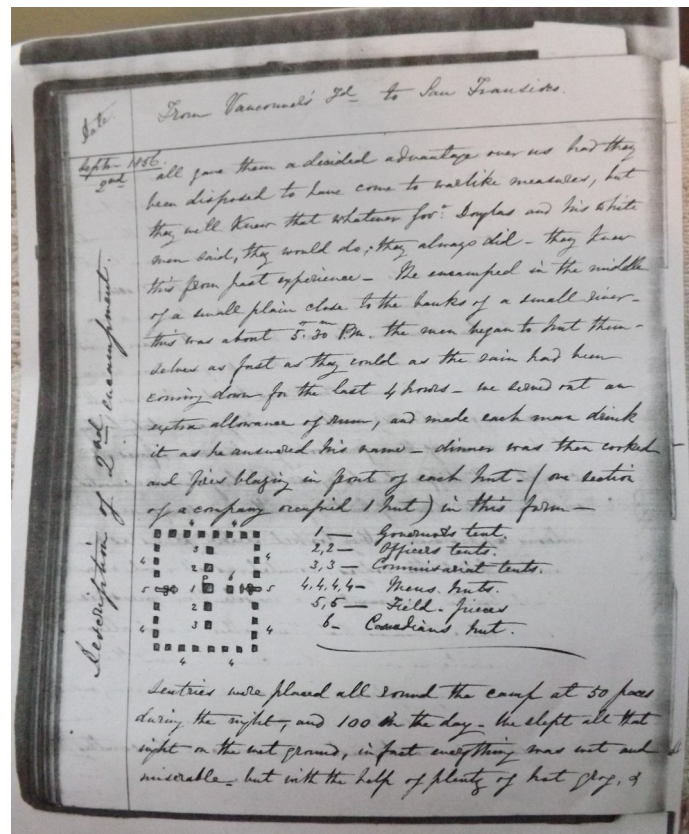 Date.
From Vancouver's Id to San Fransisco.
Septr 1856.
2nd
Description of 2nd encampment.
all gave them a decided advantage over us had they
been disposed to have come to warlike measures, but
they well knew that whatever Govr Douglas and his white
men said, they would do; they always did - they knew
this from past experience - We encamped in the middle
of a small plain close to the banks of a small river -
this was about 5.30 P.M. the men began to hut them-
selves as fast as they could as the rain had been
coming down for the last 4 hours - we served out an
extra allowance of rum, and made each man drink
it as he answered his name - dinner was then cooked
and fires blazing in front of each hut - (one section
of a company occupied 1 hut) in this form -
4 4
3
4 2 4
6
5 1 5
2
4 3 4
4 4
1 — Governors tent.
2,2 — Officers tents.
3,3 — Commissariat tents.
4,4,4,4 — Mens huts.
5,5 — Field-pieces
6 - Canadians hut.
Sentries were placed all round the camp at 50 paces
during the night, and 100 in the day - We slept all that
night on the wet ground, in fact everything was wet and
miserable - but with the help of plenty of hot grog, &